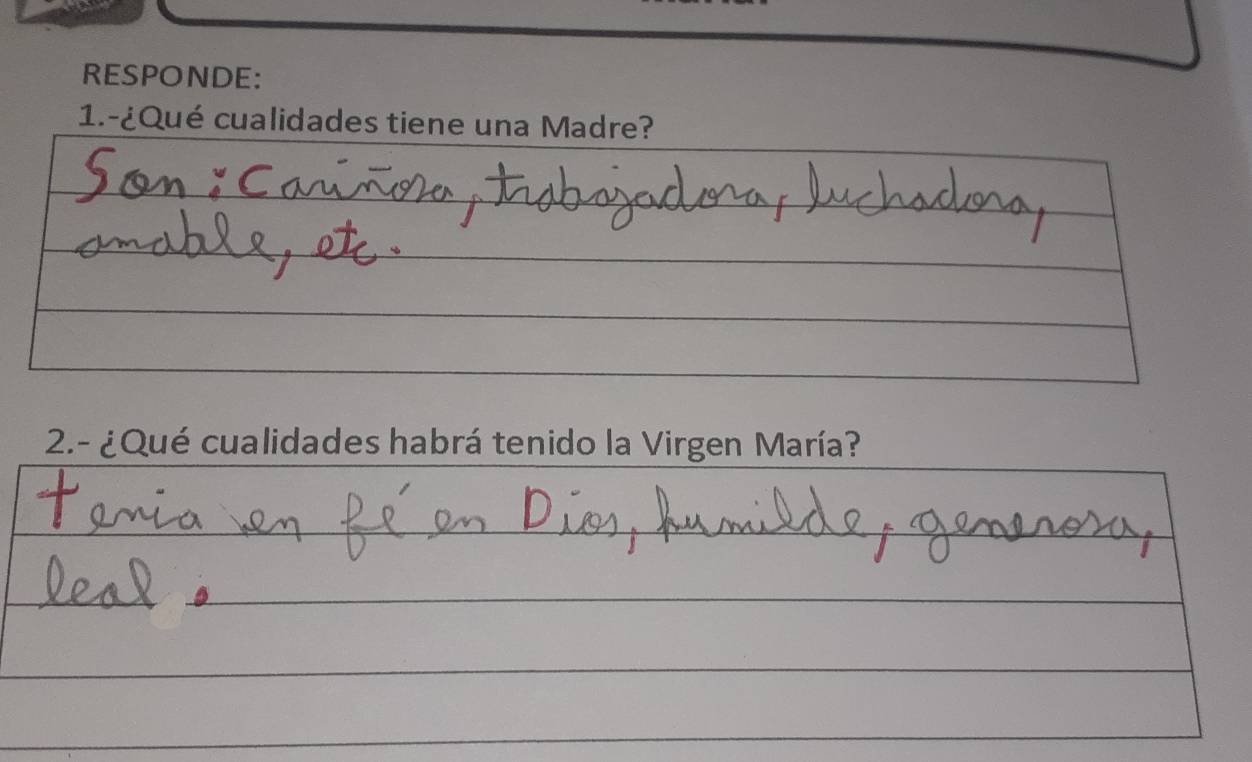 RESPONDE:
1.-¿Qué cualidades tiene una Madre?
Son: Cariñosa, trabajadora, luchadora,
amable, etc.
2.- ¿Qué cualidades habrá tenido la Virgen María?
Tenia en fé en Dios, humilde, generosa,
leal.